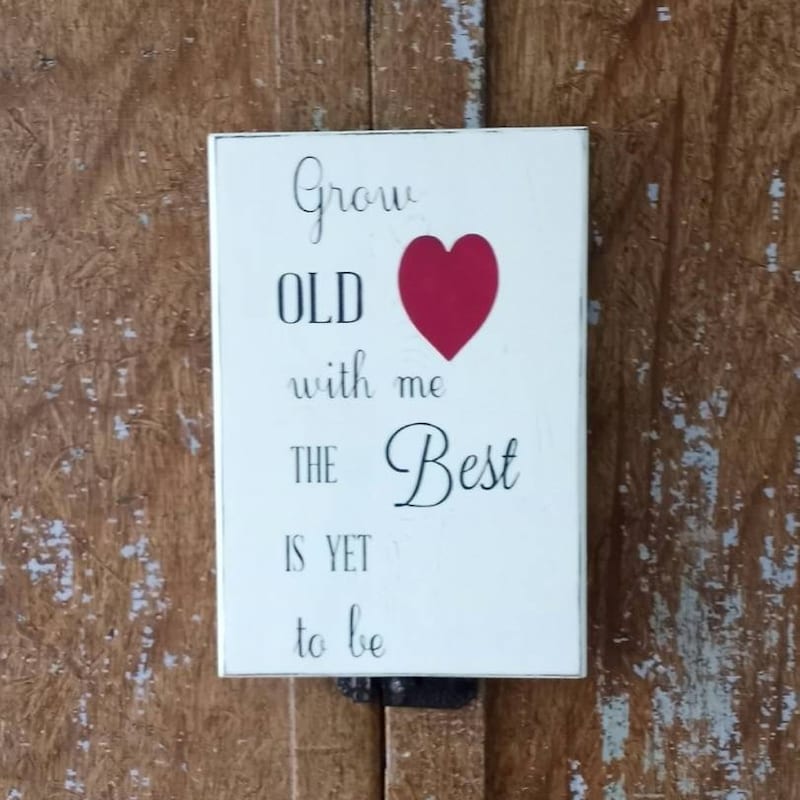 Grow
OLD
with me
THE Best
IS YET
to be